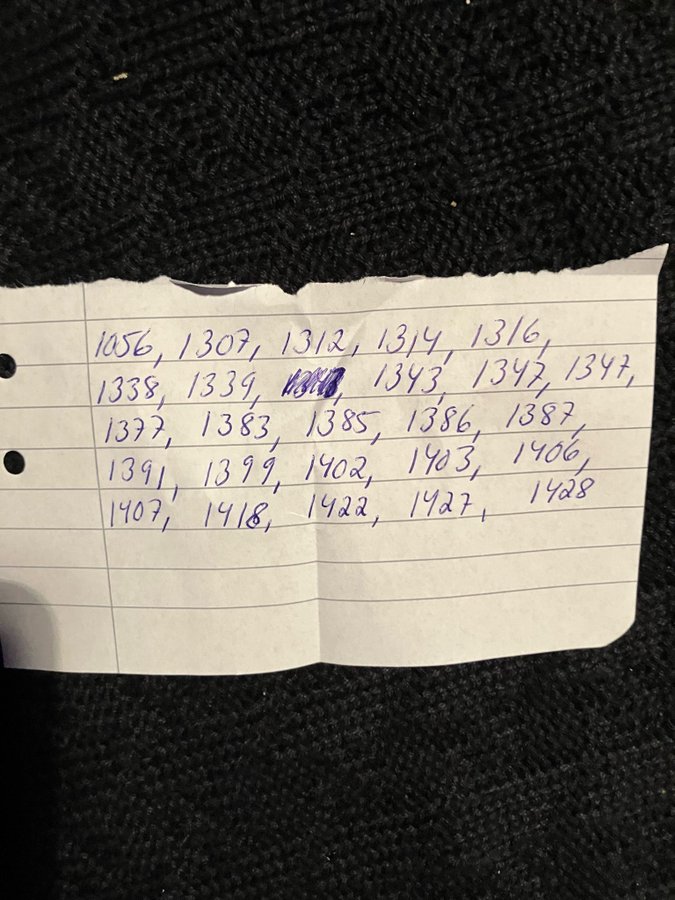 1056, 1307, 1312, 1314, 1316,
1338, 1339, , 1343, 1347, 1347,
1377, 1383, 1385, 1386, 1387,
1391, 1399, 1402, 1403, 1406,
1407, 1418, 1422, 1427, 1428